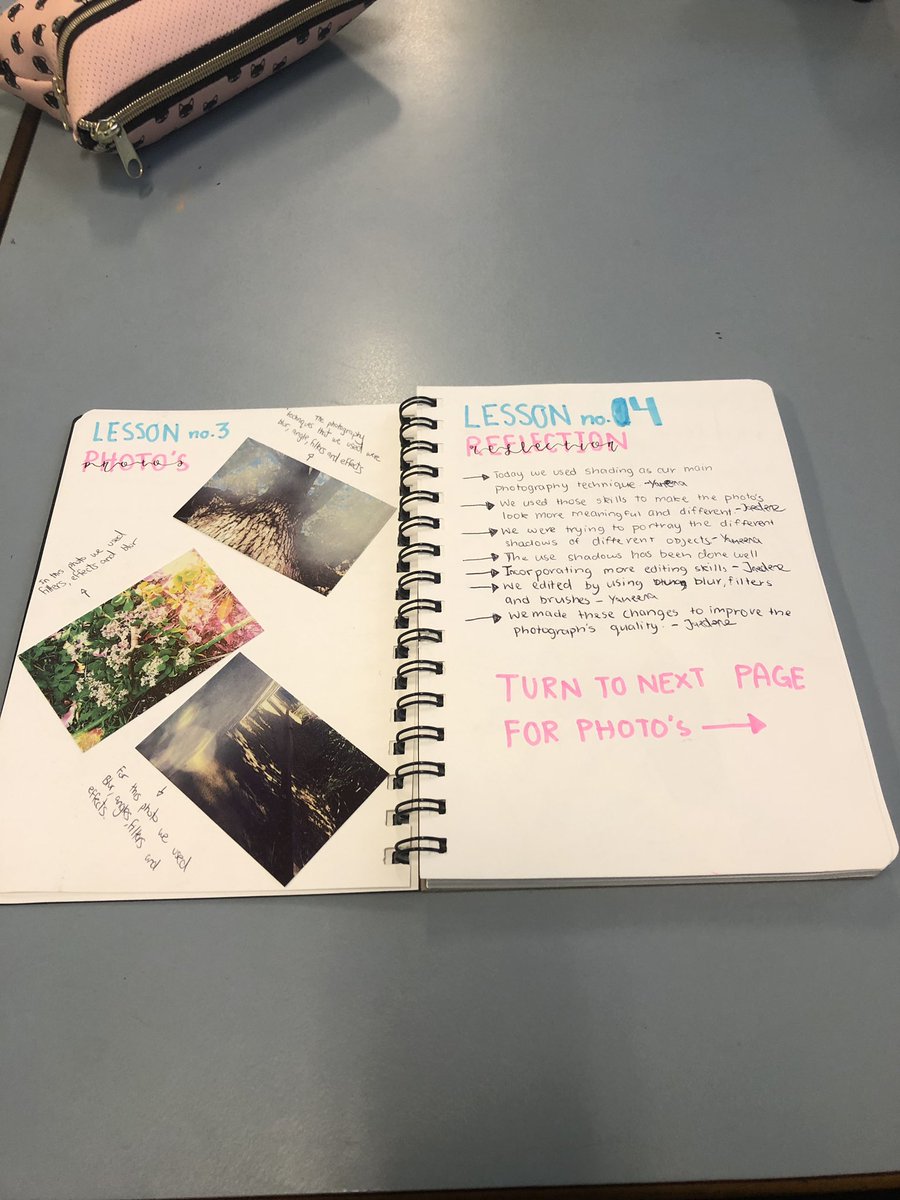 LESSON no.3
PHOTO'S
photo's
The photography
techniques that we used were
blur, angle, filters and effects
In this photo we used
filters, effects and blur
For this photo we used
Blur, angles, filters and
effects.
LESSON no.04
REFLECTION
reflection
Today we used shading as our main
photography technique - Yaneena
We used those skills to make the photo's
look more meaningful and different -
We were trying to portray the different
shadows of different objects - Yaneena
The use shadows has been done well
Incorporating more editing skills -
We edited by using blur, filters
and brushes - Yaneena
We made these changes to improve the
photograph's quality. -
TURN TO NEXT PAGE
FOR PHOTO'S